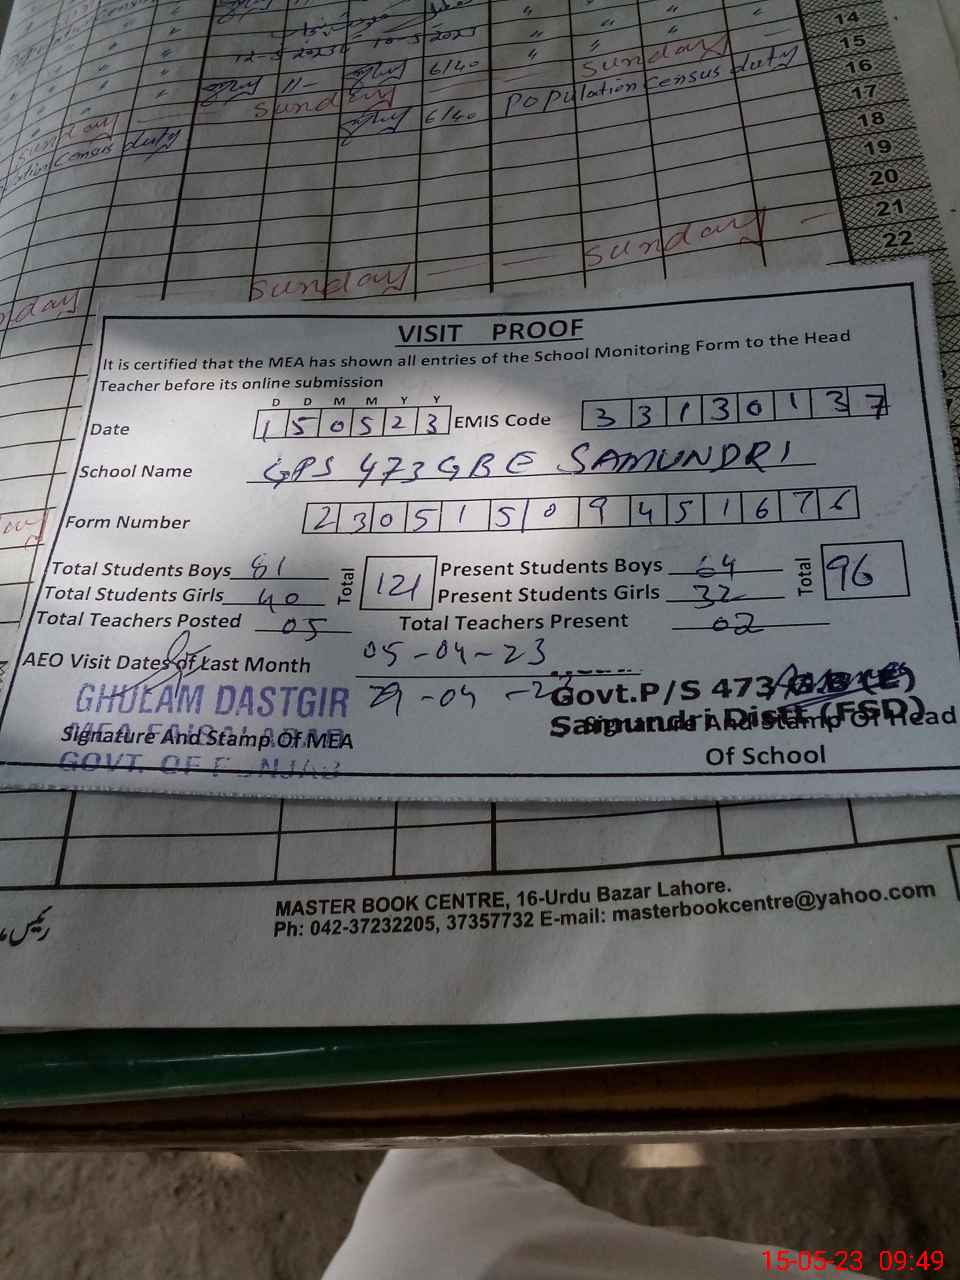 14
15
12-5-2023 10-5-2023
11- 6/40 Sunday 16
Sunday Population census duty 17
Sunday 6/40 18
census duty 19
20
21
Sunday 22
Sunday
VISIT PROOF
It is certified that the MEA has shown all entries of the School Monitoring Form to the Head
Teacher before its online submission
D D M M Y Y
Date 1 5 0 5 2 3 EMIS Code 3 3 1 3 0 1 3 7
School Name GPS 473GBE SAMUNDRI
Form Number 2 3 0 5 1 5 0 9 4 5 1 6 7 6
Total Students Boys 81 Total 121 Present Students Boys 64 Total 96
Total Students Girls 40 Present Students Girls 32
Total Teachers Posted 05 Total Teachers Present 02
AEO Visit Dates of Last Month 05-04-23
29-04-23
GHULAM DASTGIR Govt.P/S 473 G.B (E)
MEA FAISALABAD Samundri Distt (FSD)
Signature And Stamp Of MEA Signature And Stamp Of Head
GOVT. OF PUNJAB Of School
MASTER BOOK CENTRE, 16-Urdu Bazar Lahore.
Ph: 042-37232205, 37357732 E-mail: masterbookcentre@yahoo.com
15-05-23 09:49